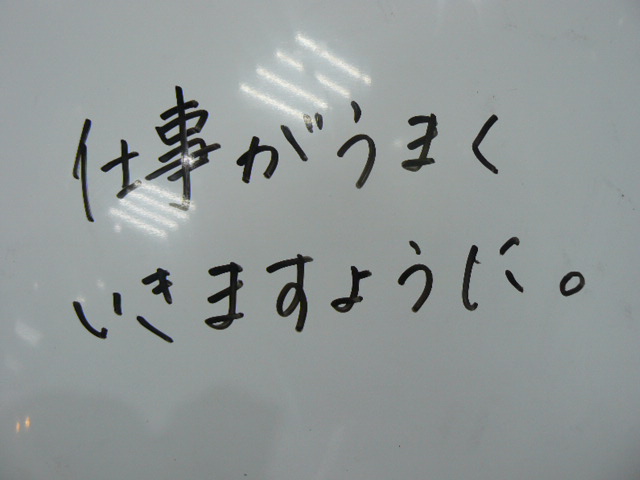 仕事がうまく
いきますように。